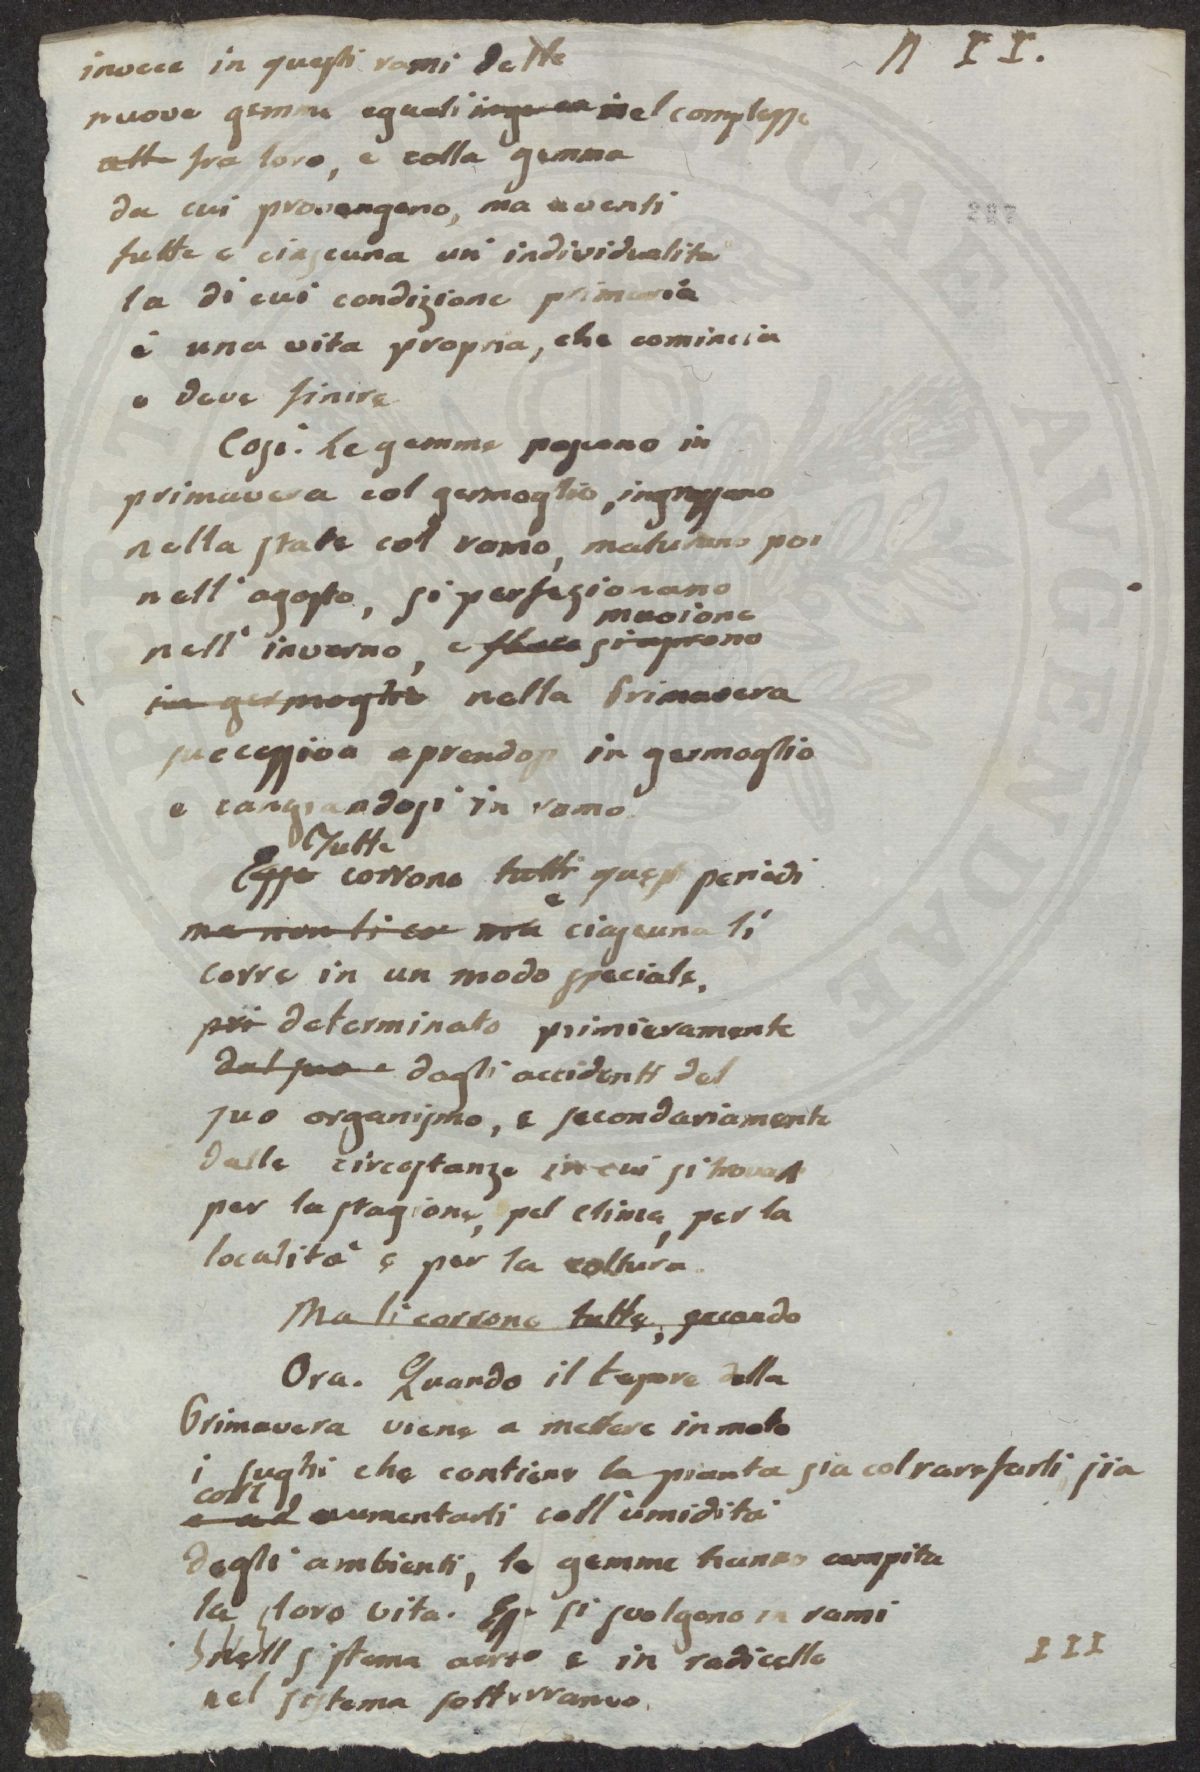 n II.
invece in questi rami delle
nuove gemme eguali nel complesso
fra loro, e colla gemma
da cui provengono, ma aventi
tutte e ciascuna un' individualità
la di cui condizione primaria
è una vita propria, che comincia
e deve finire
Così. Le gemme nascono in
primavera col germoglio, ingrossano
nella state col ramo, maturano poi
nell' agosto, si perfezionano
muoiono
nell' inverno, e si aprono
in germoglio nella Primavera
successiva aprendosi in germoglio
e cangiandosi in ramo.
Tutte
Esse corrono tutti questi periodi
e
ma non li co ma ciascuna li
corre in un modo speciale,
pri determinato primieramente
dal suo e dagli accidenti del
suo organismo, e secondariamente
dalle circostanze in cui si trova
per la stagione, pel clima, per la
località e per la coltura.
Ma li corrono tutte, secondo
Ora. Quando il tepore della
Primavera viene a mettere in moto
i sughi che contiene la pianta sia col rarefarli, sia
coll'
e ad aumentarli coll' umidità
degli ambienti, le gemme hanno compita
la loro vita. Esse si svolgono in rami
nell sistema aereo e in radicelle
III
nel sistema sotterraneo.